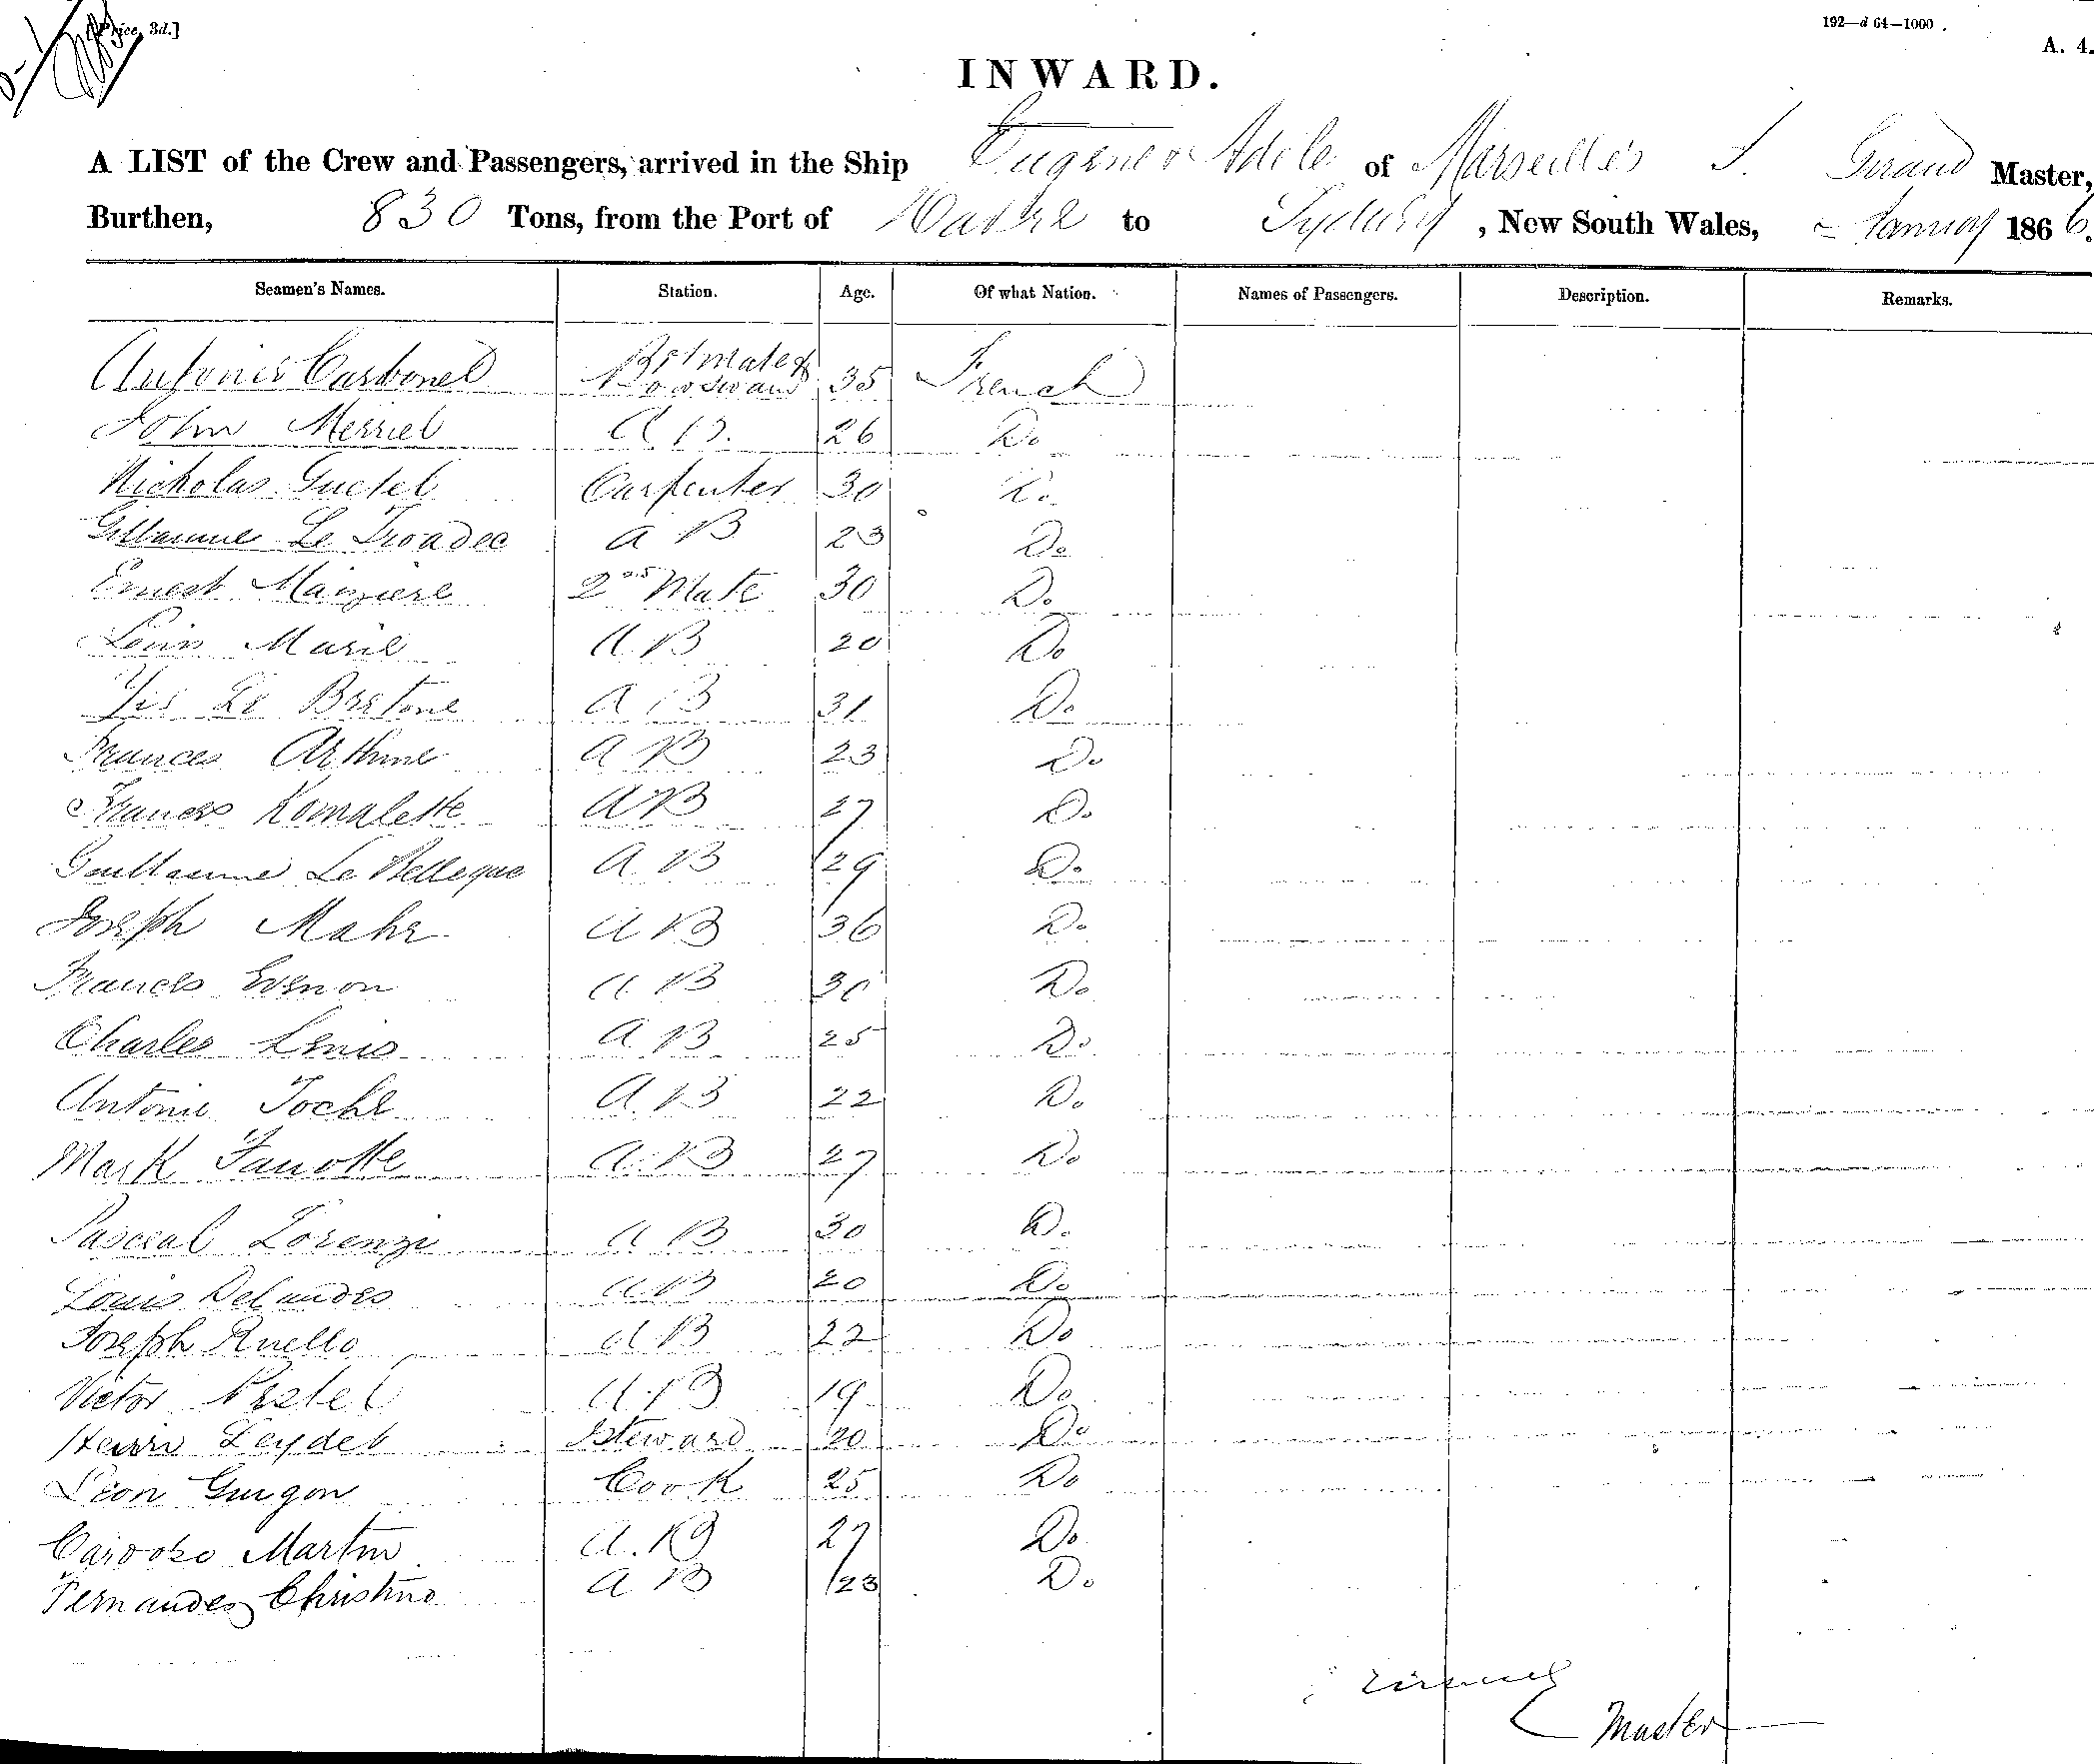 Price, 3d.]
192—d 64—1000
A. 4.
INWARD.
A LIST of the Crew and Passengers, arrived in the Ship Eugene & Adele of Marseilles J. Giraud Master,
Burthen, 830 Tons, from the Port of Havre to Sydney, New South Wales, January 1866.
Seamen's Names. Station. Age. Of what Nation. Names of Passengers. Description. Remarks.
Antonie Carbonel 1st mate & 35 French
John Merriel A B. 26 Do
Nicholas Guetel Carpenter 30 Do
Le Troadec A B 23 Do
Ernest Maiziere 2nd Mate 30 Do
Louis Marie A. B 20 Do
Le Bretone A B 31 Do
Frances Arthme A B 23 Do
Frances Romalette A B 27 Do
Guillaume Le A. B 29 Do
Joseph Mahe A B 36 Do
Frances Evenon A B 30 Do
Charles Lenis A B 25 Do
Antonie Toche A. B 22 Do
Mark Fanotte A. B 27 Do
Pascal Lorenzi A B 30 Do
Louis Delandes A B 20 Do
Joseph Ruello A. B 22 Do
Victor A B 19 Do
Henri Leydet Steward 20 Do
Leon Guigon Cook 25 Do
Martin A. B 27 Do
Fernandez Christino A B 23 Do
Master